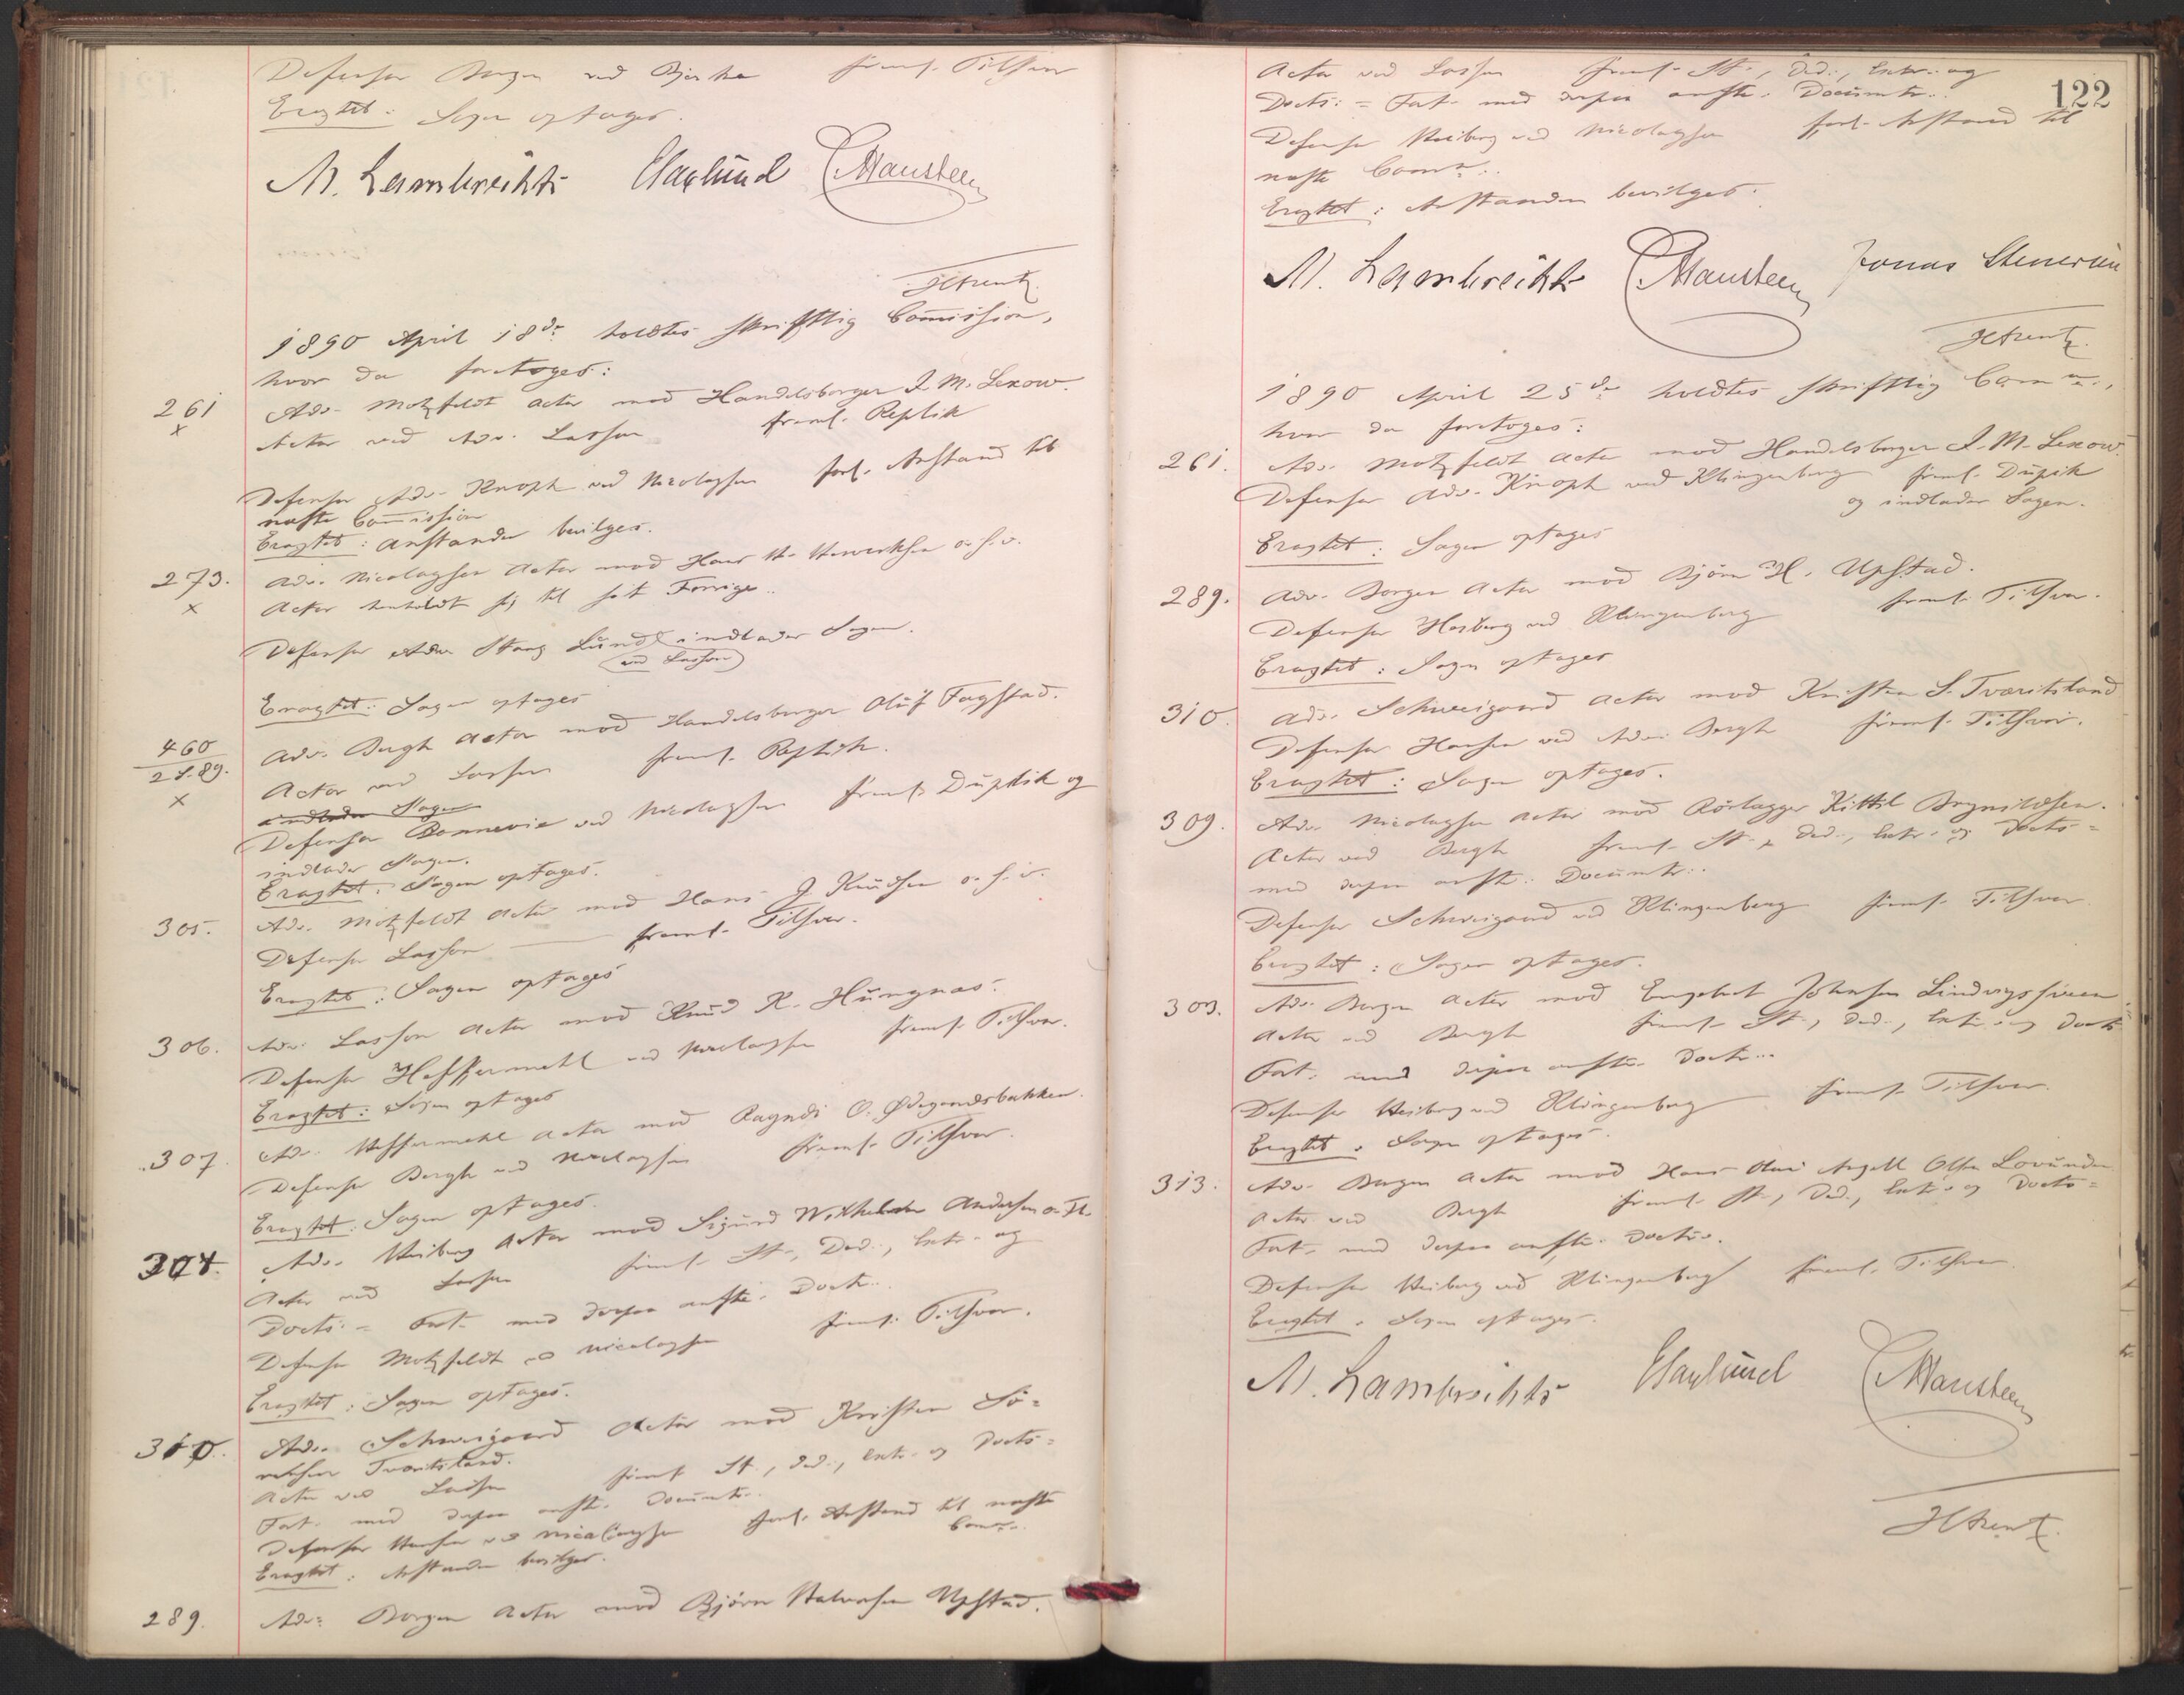 Defensor Borgen ved Bjerke freml. Tilsvar
Eragtet: Sagen optages.
M. Lambrechts EHaglund CHansteen
HArentz.
1890 April 18de holdtes skriftlig Commission,
hvor da foretoges:
261 Adv. Motzfeldt Actor mod Handelsborger I. M. Lexow.
x Actor ved Adv. Lasson freml. Replik
Defensor Adv. Knoph ved Nicolaysen forl. Anstand til
næste Commission
Eragtet: Anstanden bevilges.
273. Adv. Nicolaysen Actor mod Hans H. Henriksen o. s. v.
x Actor henholdt sig til sit Forrige..
Defensor Adv. Stang Lund indlader Sagen.
ved Lasson
Eragtet: Sagen optages
460 Adv. Bergh Actor mod Handelsborger Oluf Fagstad.
2 S. 89. Actor ved Lasson freml. Replik.
x indlader Sagen
Defensor Bonnevie ved Nicolaysen freml. Duplik og
indlader Sagen.
Eragtet: Sagen optages.
305. Adv. Motzfeldt Actor mod Hans J Knudsen o. s. v.
Defensor Lasson freml. Tilsvar.
Eragtet: Sagen optages
306. Adv. Lasson Actor mod Knud K. Hungnæs.
Defensor Heffermehl ved Nicolaysen freml. Tilsvar.
Eragtet: Sagen optages
307. Adv. Heffermehl Actor mod Ragndi O. Ødegaardsbakken.
Defensor Bergh ved Nicolaysen freml. Tilsvar.
Eragtet: Sagen optages.
Adv. Heiberg Actor mod Sigurd Wilhelm Andersen o. Fl.
Actor ved Lasson freml. St., Ded., Extr. og
Docts. = Fort. med derpaa anfte. Doctr..
Defensor Motzfeldt ved Nicolaysen freml. Tilsvar.
Eragtet: Sagen optages.
310. Adv. Schweigaard Actor mod Kristen Sø=
rensen Tvaritsland.
Actor ved Lasson freml. St., Ded., Extr. og Docts=
Fort. med derpaa anfte. Documtr..
Defensor Hansen ved Nicolaysen forl. Anstand til næste
Comm..
Eragtet: Anstanden bevilges.
289. Adv. Borgen Actor mod Bjørn Halvorsen Upstad.
122
Actor ved Lasson freml. St., Ded., Extr. og
Docts: = Fort. med derpaa anfte. Documtr..
Defensor Heiberg ved Nicolaysen forl. Anstand til
næste Comm..
Eragtet: Anstanden bevilges.
M. Lambrechts CHansteen Jonas Stenersen
HArentz.
1890 April 25de holdtes skriftlig Comm..,
hvor da foretoges:
261. Adv. Motzfeldt Actor mod Handelsborger I. M. Lexow.
Defensor Adv. Knoph ved Klingenberg freml. Duplik
og indlader Sagen.
Eragtet: Sagen optages
289. Adv. Borgen Actor mod Bjørn H. Upstad.
Defensor Hesberg ved Klingenberg freml. Tilsvar.
Eragtet: Sagen optages
310. Adv. Schweigaard Actor mod Kristen S. Tvaritsland
Defensor Hansen ved Adv. Bergh freml. Tilsvar.
Eragtet: Sagen optages.
309. Adv. Nicolaysen Actor mod Rørlægger Kittil Brynildsen.
Actor ved Bergh freml. St., Ded., Extr. og Docts=
med derpaa anfte. Documtr..
Defensor Schweigaard ved Klingenberg freml. Tilsvar
Eragtet: Sagen optages.
303. Adv. Borgen Actor mod Engebret Johnsen
Actor ved Bergh freml. St., Ded., Extr. og Docts
Fort. med derpaa anfte. Doctr..
Defensor Heiberg ved Klingenberg freml. Tilsvar.
Eragtet: Sagen optages.
313. Adv. Borgen Actor mod Hans Olsen
Actor ved Bergh freml. St., Ded., Extr. og Docts=
Fort. med derpaa anfte. Doctr..
Defensor Heiberg ved Klingenberg freml. Tilsvar.
Eragtet: Sagen optages.
M. Lambrechts EHaglund CHansteen
HArentz.